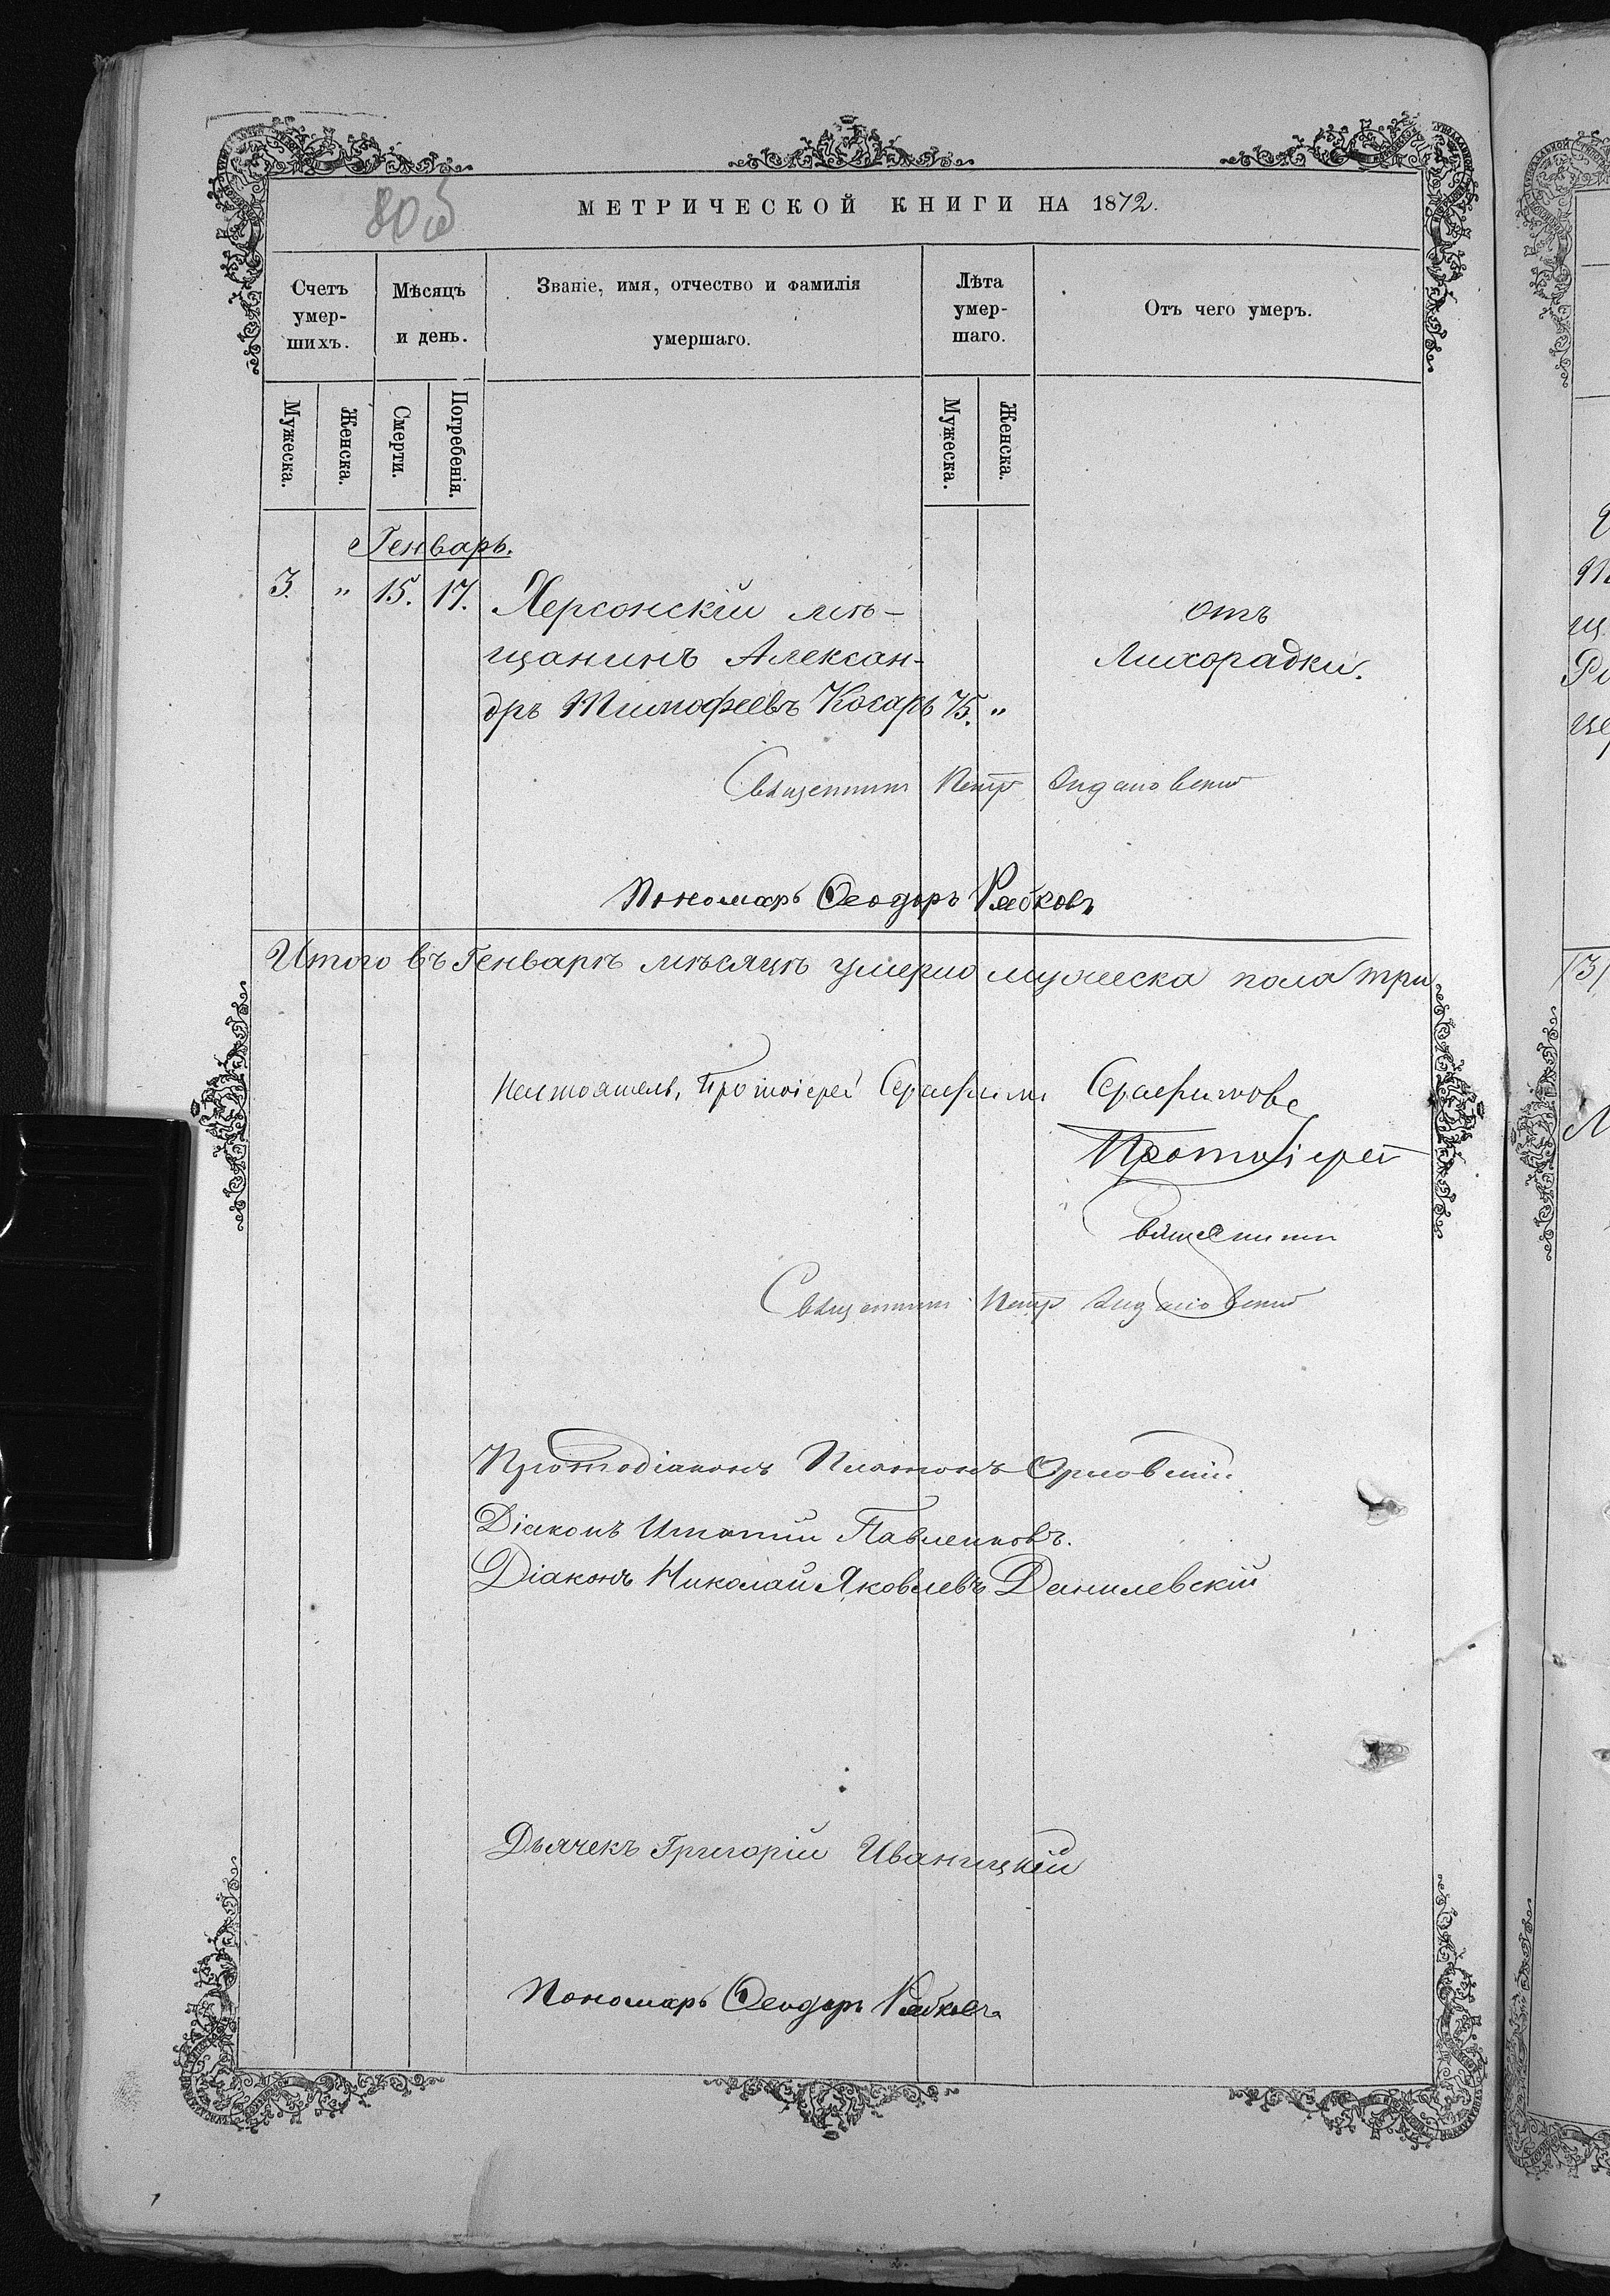 80об
МЕТРИЧЕСКОЙ КНИГИ НА 1872.
Счетъ умер-шихъ.
Мѣсяцъ и день.
Званіе, имя, отчество и фамилія умершаго.
Лѣта умер-шаго.
Отъ чего умеръ.
Мужеска.
Женска.
Смерти.
Погребенія.
Мужеска.
Женска.
Генварь.
3. " 15. 17. Херсонскій мѣ- отъ
щанинъ Алексан- Лихорадки.
дръ Тимофеевъ Косаръ 75. "
Священникъ Петръ
Пономарь Ѳеодоръ Рябковъ
Итого въ Генварѣ мѣсяцѣ умерло мужеска пола три
Настоятель, Протоіерей Серафимъ Серафимовъ
Протоіерей
Священникъ Петръ
Протодіаконъ Платонъ Орловскій
Діаконъ Павленковъ.
Діаконъ Николай Яковлевъ Данилевскій
Дьячекъ Григорій Иваницкій
Пономарь Ѳеодоръ Рябковъ